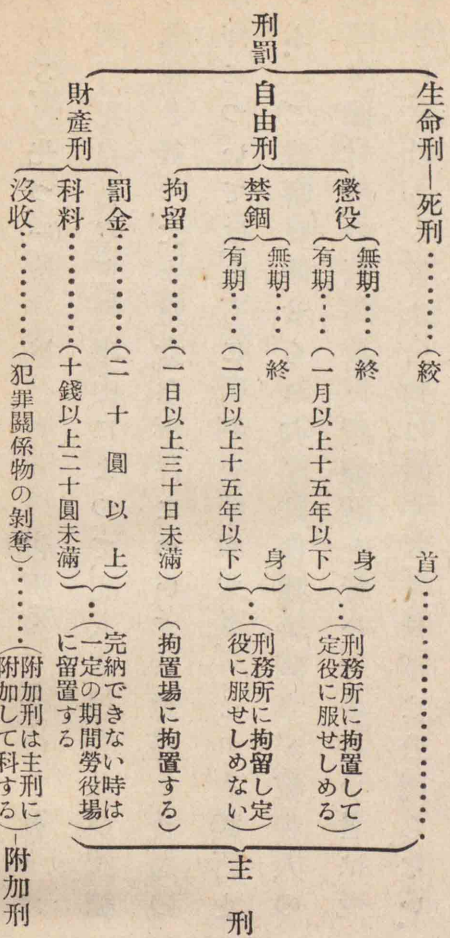 刑罰
生命刑―死刑…………(絞首)…………
自由刑
懲役
無期……(終身)
有期……(一月以上十五年以下)
…(刑務所に拘置して
定役に服せしめる)
禁錮
無期……(終身)
有期……(一月以上十五年以下)
…(刑務所に拘留し定
役に服せしめない)
拘留…………(一日以上三十日未滿)
(拘置場に拘置する)
財產刑
罰金…………(二十圓以上)
科料…………(十錢以上二十圓未滿)
…(完納できない時は
一定の期間勞役場
に留置する)
沒收…………(犯罪關係物の剝奪)……(附加刑は主刑に
附加して科する)―附加刑
主刑